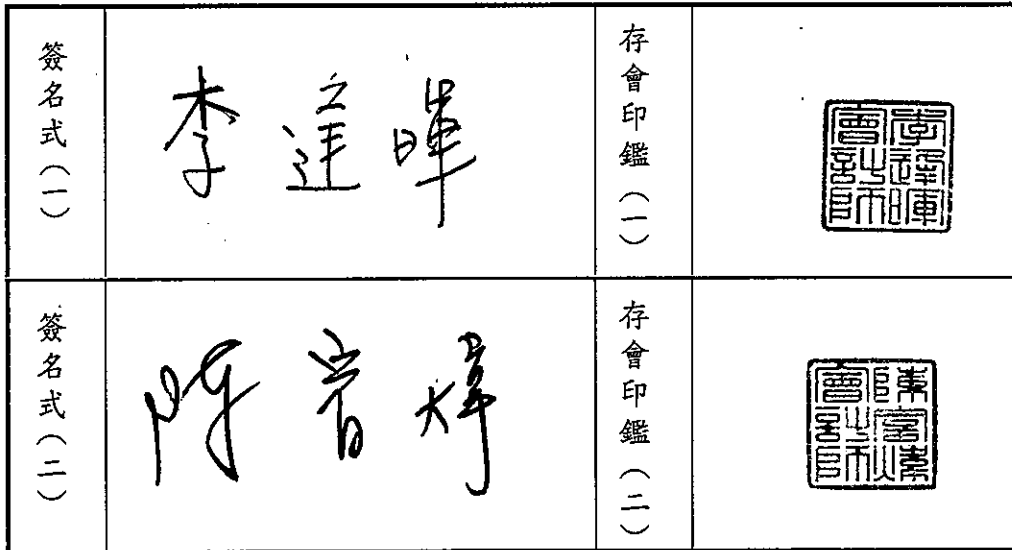 簽名式(一)
李逢暉
存會印鑑(一)
李逢暉會計師
簽名式(二)
陳富煒
存會印鑑(二)
陳富煒會計師